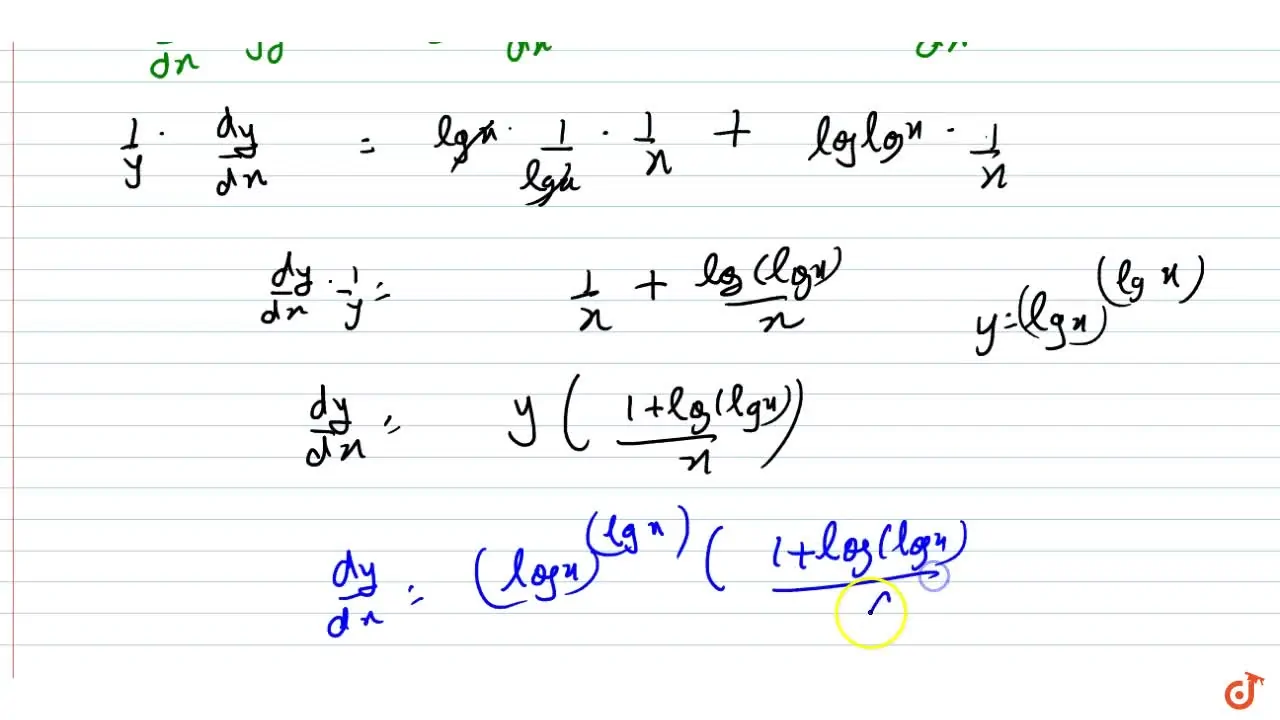 1/y · dy/dx = log x · 1/log x · 1/x + log log x · 1/x
dy/dx · 1/y = 1/x + log(log x)/x
y = (log x)^(log x)
dy/dx = y ( 1 + log(log x) / x )
dy/dx = (log x)^(log x) ( 1 + log(log x)